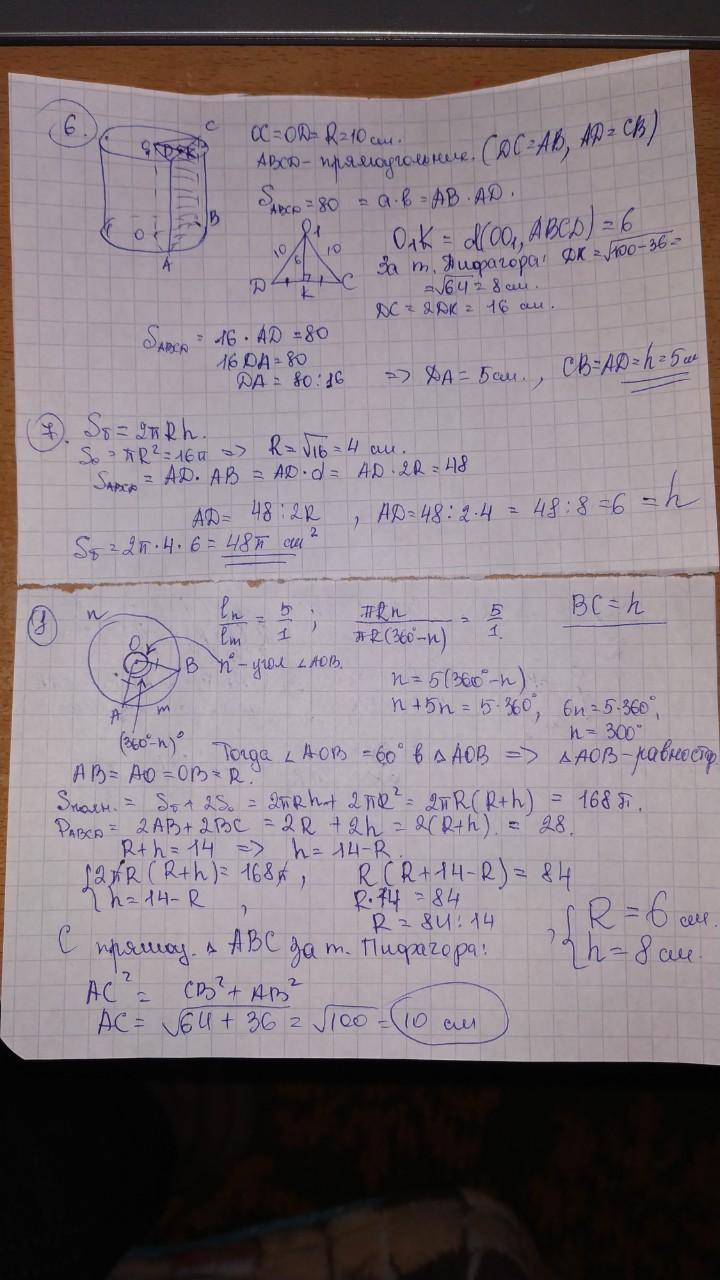 6.
C
B
A
O
OC = OD = R = 10 см.
ABCD - прямоугольник. (DC = AB, AD = CB)
S_ABCD = 80 = a·b = AB·AD.
O1
10 6 10
D K C
O₁K = d(OO₁, ABCD) = 6
За т. Пифагора: DK = √100-36 =
= √64 = 8 см.
DC = 2DK = 16 см.
S_ABCD = 16 · AD = 80
16 DA = 80
DA = 80 : 16 => DA = 5 см. , CB = AD = h = 5 см
7. Sб = 2πRh.
So = πR² = 16π => R = √16 = 4 см.
S_ABCD = AD·AB = AD·d = AD·2R = 48
AD = 48 : 2R , AD = 48 : 2·4 = 48 : 8 = 6 = h
Sб = 2π·4·6 = 48π см²
8
n
O
B
A
m
n° - угол ∠AOB.
(360°-n)°
ln/lm = 5/1 ; πRn/πR(360°-n) = 5/1. BC = h
n = 5(360°-n)
n + 5n = 5·360°, 6n = 5·360°,
n = 300°
Тогда ∠AOB = 60° в △AOB => △AOB - равностор
AB = AO = OB = R.
Sполн. = Sб + 2So = 2πRh + 2πR² = 2πR(R+h) = 168π.
P_ABCD = 2AB + 2BC = 2R + 2h = 2(R+h) = 28.
R + h = 14 => h = 14 - R.
{2πR(R+h) = 168π , R(R+14-R) = 84
{h = 14 - R , R·14 = 84
R = 84 : 14 , {R = 6 см.
{h = 8 см.
С прямоу. △ ABC за т. Пифагора:
AC² = CB² + AB²
AC = √64+36 = √100 = 10 см